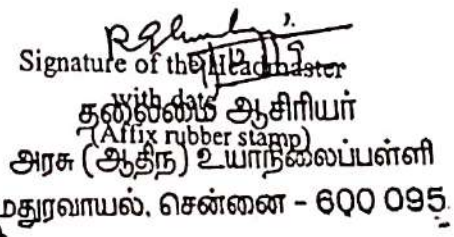 Signature of the Headmaster
with date
தலைமை ஆசிரியர்
(Affix rubber stamp)
அரசு (ஆதிந) உயர்நிலைப்பள்ளி
மதுரவாயல், சென்னை - 600 095.